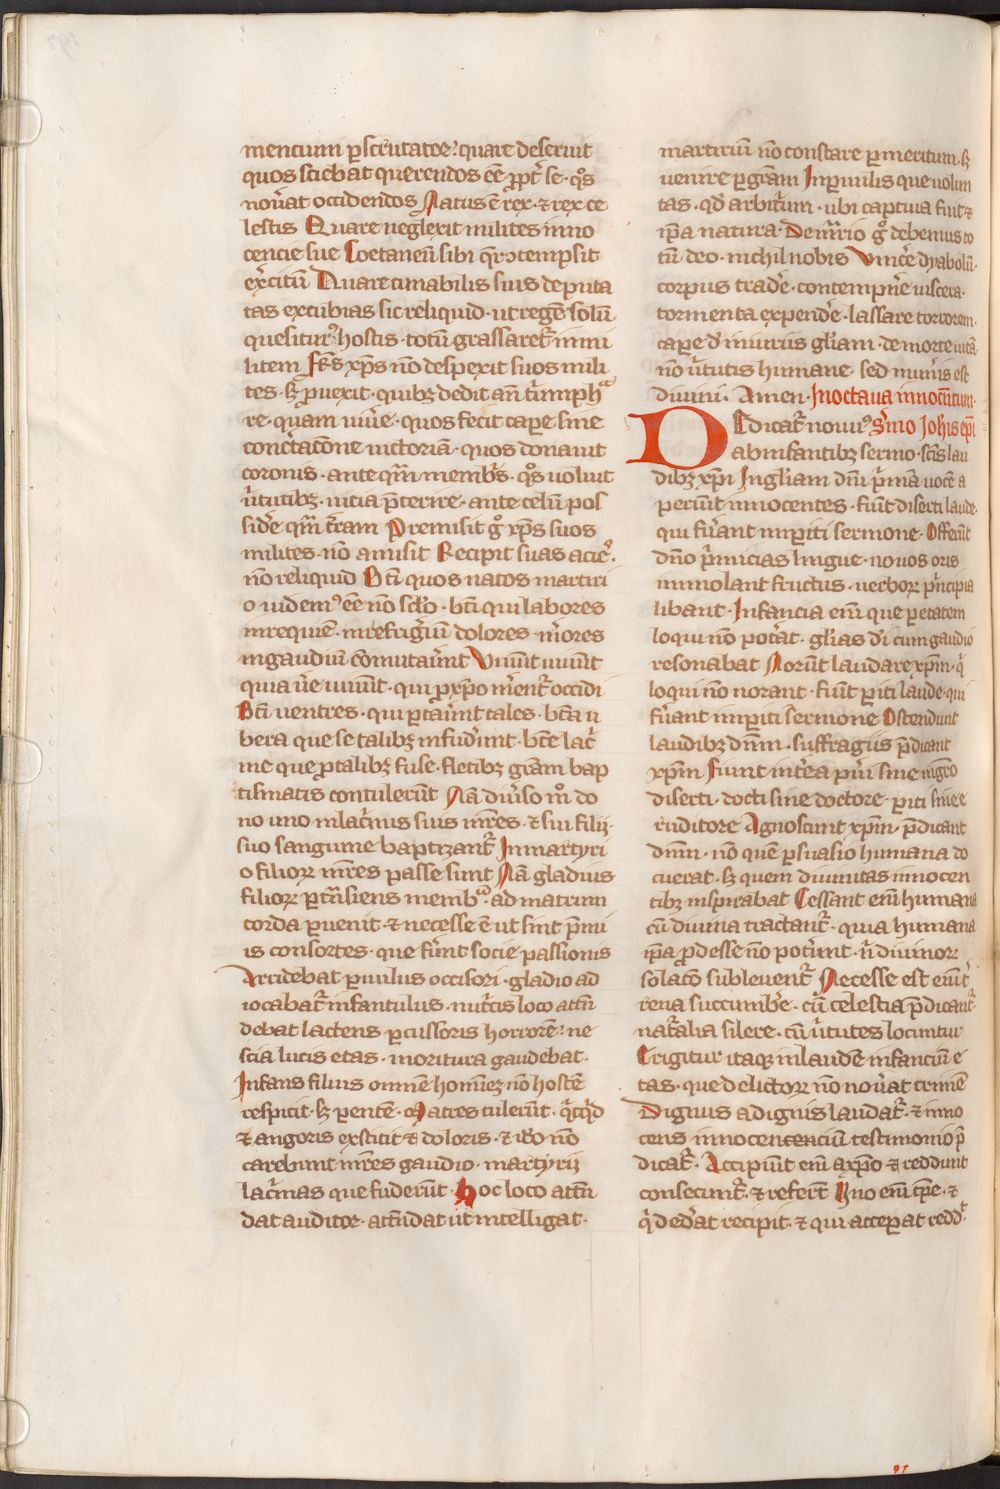 mencium ꝑscrutator? quare deseruit
quos sciebat querendos eē ꝓpt̄ se · q̊s
nouat̾ occidendos Natus ē rex · ⁊ rex ce
lestis Quare neglexit milites inno
cencie sue Coetaneū sibi qr̄ ↄtempsit
ex̾citū Quare cunabilis suis deputa
tas excubias sic reliquid · ut regē solū
quesitur? hostis · totū grassaret᷑ in mi
litem Frēs xp̄s nō despexit suos mili
tes · sꝫ ꝓuexit · quibꝫ dedit an̄ t̾umphᵃ
re · quam uiue̾ · quos fecit cape̾ sine
concr̾tacōne uictoriā · quos donauit
coronis · ante qm̄ membr̾s · q̊s uoluit
ūtutibꝫ · uicia p̄terire · ante celū pos
side̾ qm̄ tr̄am Premisit gͦ xp̄s suos
milites · nō amisit Recipit suas acieꝰ ·
nō reliquid Bt̄i quos natos martiri
o uidemꝰ eē nō sclo̾ · bt̄i qui labores
in requiē · in refrigiū̾ dolores · m̄ores
in gaudiū cōmutauīt̾ Viuūt uiuūt
quia ūe uiuūt · qui ꝓ xp̄o m̄ent᷑ occidi
Bt̄i uentres · qui portauīt tales · bt̄a u
bera que se talibꝫ infudūt̾ · bt̄e lac̾i
me que ꝓ talibꝫ fuse · fletibꝫ gr̄am bap
tismatis contulerūt Nā diuso̾ mͦ do
no uno · in lac̾mis suis mr̄es · ⁊ sui filij ·
suo sanguine baptizant᷑ In martyri
o filioꝝ mr̄es passe sunt Nā gladius ·
filioꝝ ꝑtrāsiens membᵃ · ad matrum
corda ꝑuenit · ⁊ necesse ē ut sint p̄mi
is consortes · que fuīt̾ socie passionis
Arridebat ꝑuulus occisori · gladio ad
iocabat᷑ infantulus · nut̾cis loco attn̄
debat lactens · ꝑcussoris horrorē? ne
scia lucis etas · moritura gaudebat ·
Infans filius omnē hominēꝫ nō hostē
respicit · sꝫ ꝑentē · Matres tulerūt · qͥcqͥd
⁊ angoris exstitit ⁊ doloris · ⁊ iōo nō
carebunt mr̄es gaudio · martyrij
lac̾mas que fuderūt · Hoc loco attn̄
dat auditor · attn̄dat ut intelligat ·
martiriū nō constare ꝑ meritum · sꝫ
uenire ꝑ gr̄am In ꝑuulis que uolun
tas · qd̄ arbitr̾um · ubi captiua fuit ⁊
ip̄a natura · De mr̄io gͦ debemus to
tū deo · nichil nobis Vince̾ dyabolū ·
corpus trade̾ · contempne̾ uiscera ·
tormenta expende̾ · lassare torrorem ·
cape̾ d̾ iniuriis gl̄iam · de morte uitā ·
nō ūtutis humane · sed mun̾is est
diuini · Amen · In octaua innocn̄tum ·
Dedicat᷑ nouuꝰ Sermo Joh̄is ep̄i
ab infantibꝫ sermo · scīs lau
dibꝫ xp̄i In gl̄iam dn̄i p̾mā uocē a
perūnt innocentes · fiūt diserti laude
qui fūant impiti sermone · Offerūt
dn̄o p̾micias lingue · nouos oris
immolant fructus · uerboꝝ p̾ncipia
libant · Infancia eni̅ que ꝑ etatem
loqui nō potat̾ · gl̄ias dei cum gaudio
resonabat Norūt laudare xp̄m · qͥ
loqui nō norant · fiūt ꝑiti laude · qui
fūant impiti sermone Ostendunt
laudibꝫ dn̄m · suffragiis p̄dicant
xp̄m Fiunt int̾ea pui̾ sine ingenio
diserti · docti sine doctore · ꝑiti sine e
ruditore Agnoscunt xp̄m · p̄dicant
dn̄m · nō quē ꝑsuasio humana do
cuerat · sꝫ quem diuinitas innocen
tibꝫ inspirabat Cessant eni̅ humana
cū diuina tractant᷑ · quia humana
ip̄a ꝓdesse nō potūnt · n̄ diuinoꝝ
solacō subleuent᷑ Necesse est eni̅ t̾
rena succumbe̾ · cū celestia p̄dicant᷑
nat̾alia silere · cū ūtutes locuntur
Erigitur itaqꝫ in laudē infanciū e
tas · que delictoꝝ nō nouat̾ crimē
Dignus a dignis laudat᷑ · ⁊ inno
cens innocentenciū testimonio p̄
dicat᷑ · Accipiūt eni̅ a xp̄o ⁊ reddunt
consecunt᷑ · ⁊ referūt Uno eni̅ tp̄e · ⁊
qͥ dedat̾ recipit · ⁊ qui acceꝑat redd᷑ ·